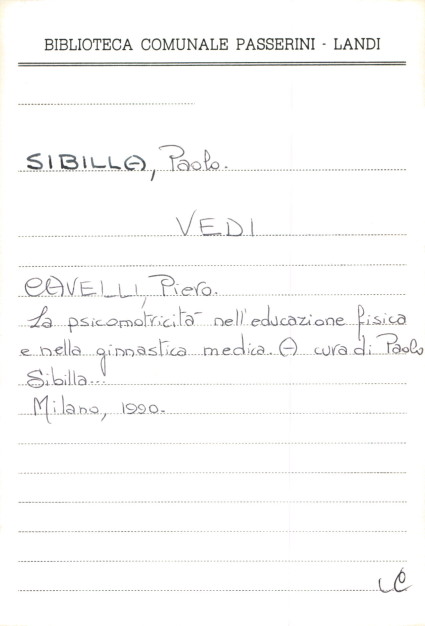 BIBLIOTECA COMUNALE PASSERINI - LANDI
SIBILLA, Paolo.
VEDI
CAVELLI, Piero.
La psicomotricità nell'educazione fisica
e nella ginnastica medica. A cura di Paolo
Sibilla...
Milano, 1990.